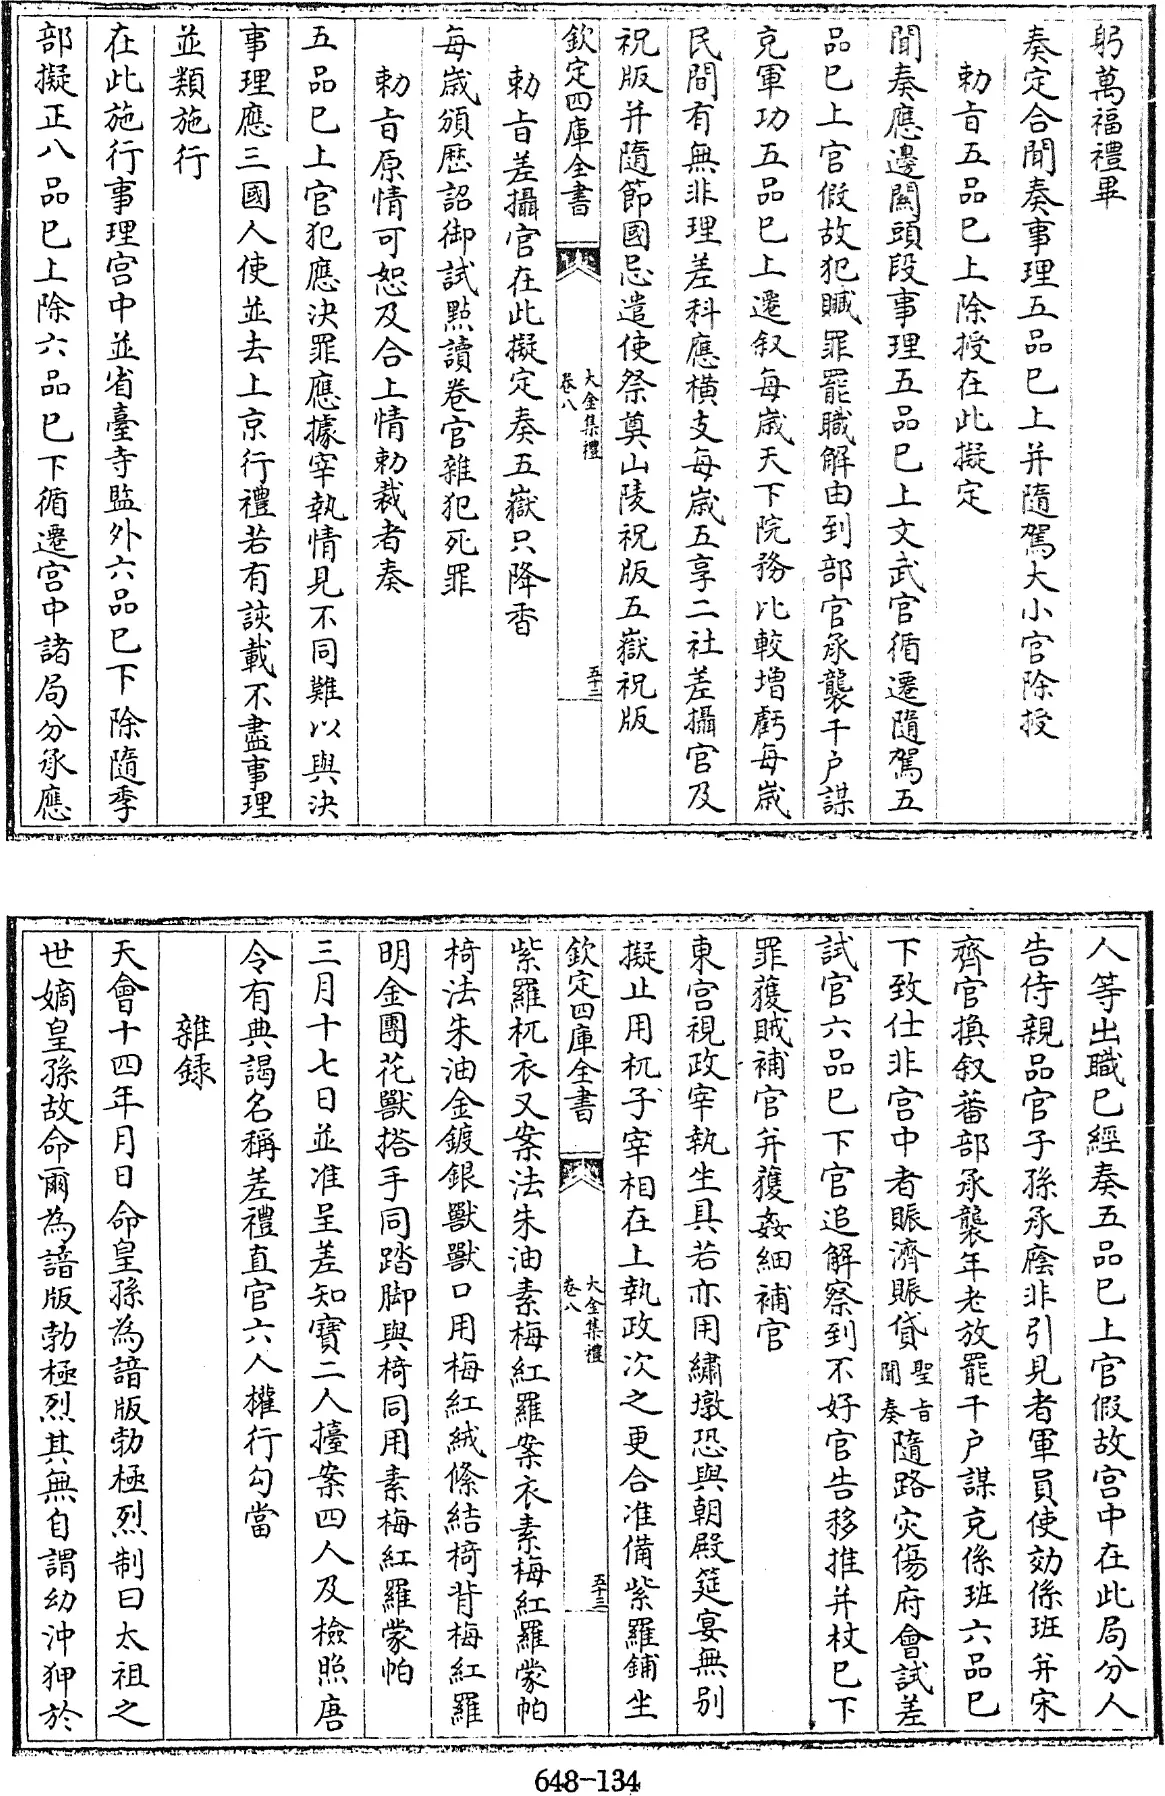 躬萬福禮畢
奏定合聞奏事理五品已上并隨駕大小官除授
勅旨五品已上除授在此擬定
聞奏應邊關頭段事理五品已上文武官循遷隨駕五
品已上官假故犯贓罪罷職解由到部官承襲千户謀
克軍功五品已上遷叙每歲天下院務比較增虧每歲
民間有無非理差科應橫支每歲五享二社差攝官及
祝版并隨節國忌遣使祭奠山陵祝版五嶽祝版
欽定四庫全書
大金集禮
卷八
五十二
勅旨差攝官在此擬定奏五嶽只降香
每歲頒歷詔御試點讀卷官雜犯死罪
勅旨原情可恕及合上情勅裁者奏
五品已上官犯應決罪應據宰執情見不同難以與決
事理應三國人使並去上京行禮若有該載不盡事理
並類施行
在此施行事理宫中並省臺寺監外六品已下除隨季
部擬正八品已上除六品已下循遷宫中諸局分承應
人等出職已經奏五品已上官假故宫中在此局分人
告侍親品官子孫承廕非引見者軍員使効係班并宋
齊官換叙蕃部承襲年老放罷千户謀克係班六品已
下致仕非宫中者賑濟賑貸聖旨聞奏隨路灾傷府會試差
試官六品已下官追解察到不好官告移推并杖已下
罪獲賊補官并獲姦細補官
東宫視政宰執生具若亦用繡墩恐與朝殿筵宴無別
擬止用杌子宰相在上執政次之更合准備紫羅鋪坐
欽定四庫全書
大金集禮
卷八
五十三
紫羅杌衣又案法朱油素梅紅羅案衣素梅紅羅蒙帕
椅法朱油金鍍銀獸獸口用梅紅絨絛結椅背梅紅羅
明金團花獸搭手同踏脚與椅同用素梅紅羅蒙帕
三月十七日並准呈差知寶二人擡案四人及檢照唐
令有典謁名稱差禮直官六人權行勾當
雜録
天會十四年月日命皇孫為諳版勃極烈制曰太祖之
世嫡皇孫故命爾為諳版勃極烈其無自謂幼沖狎於
648-134